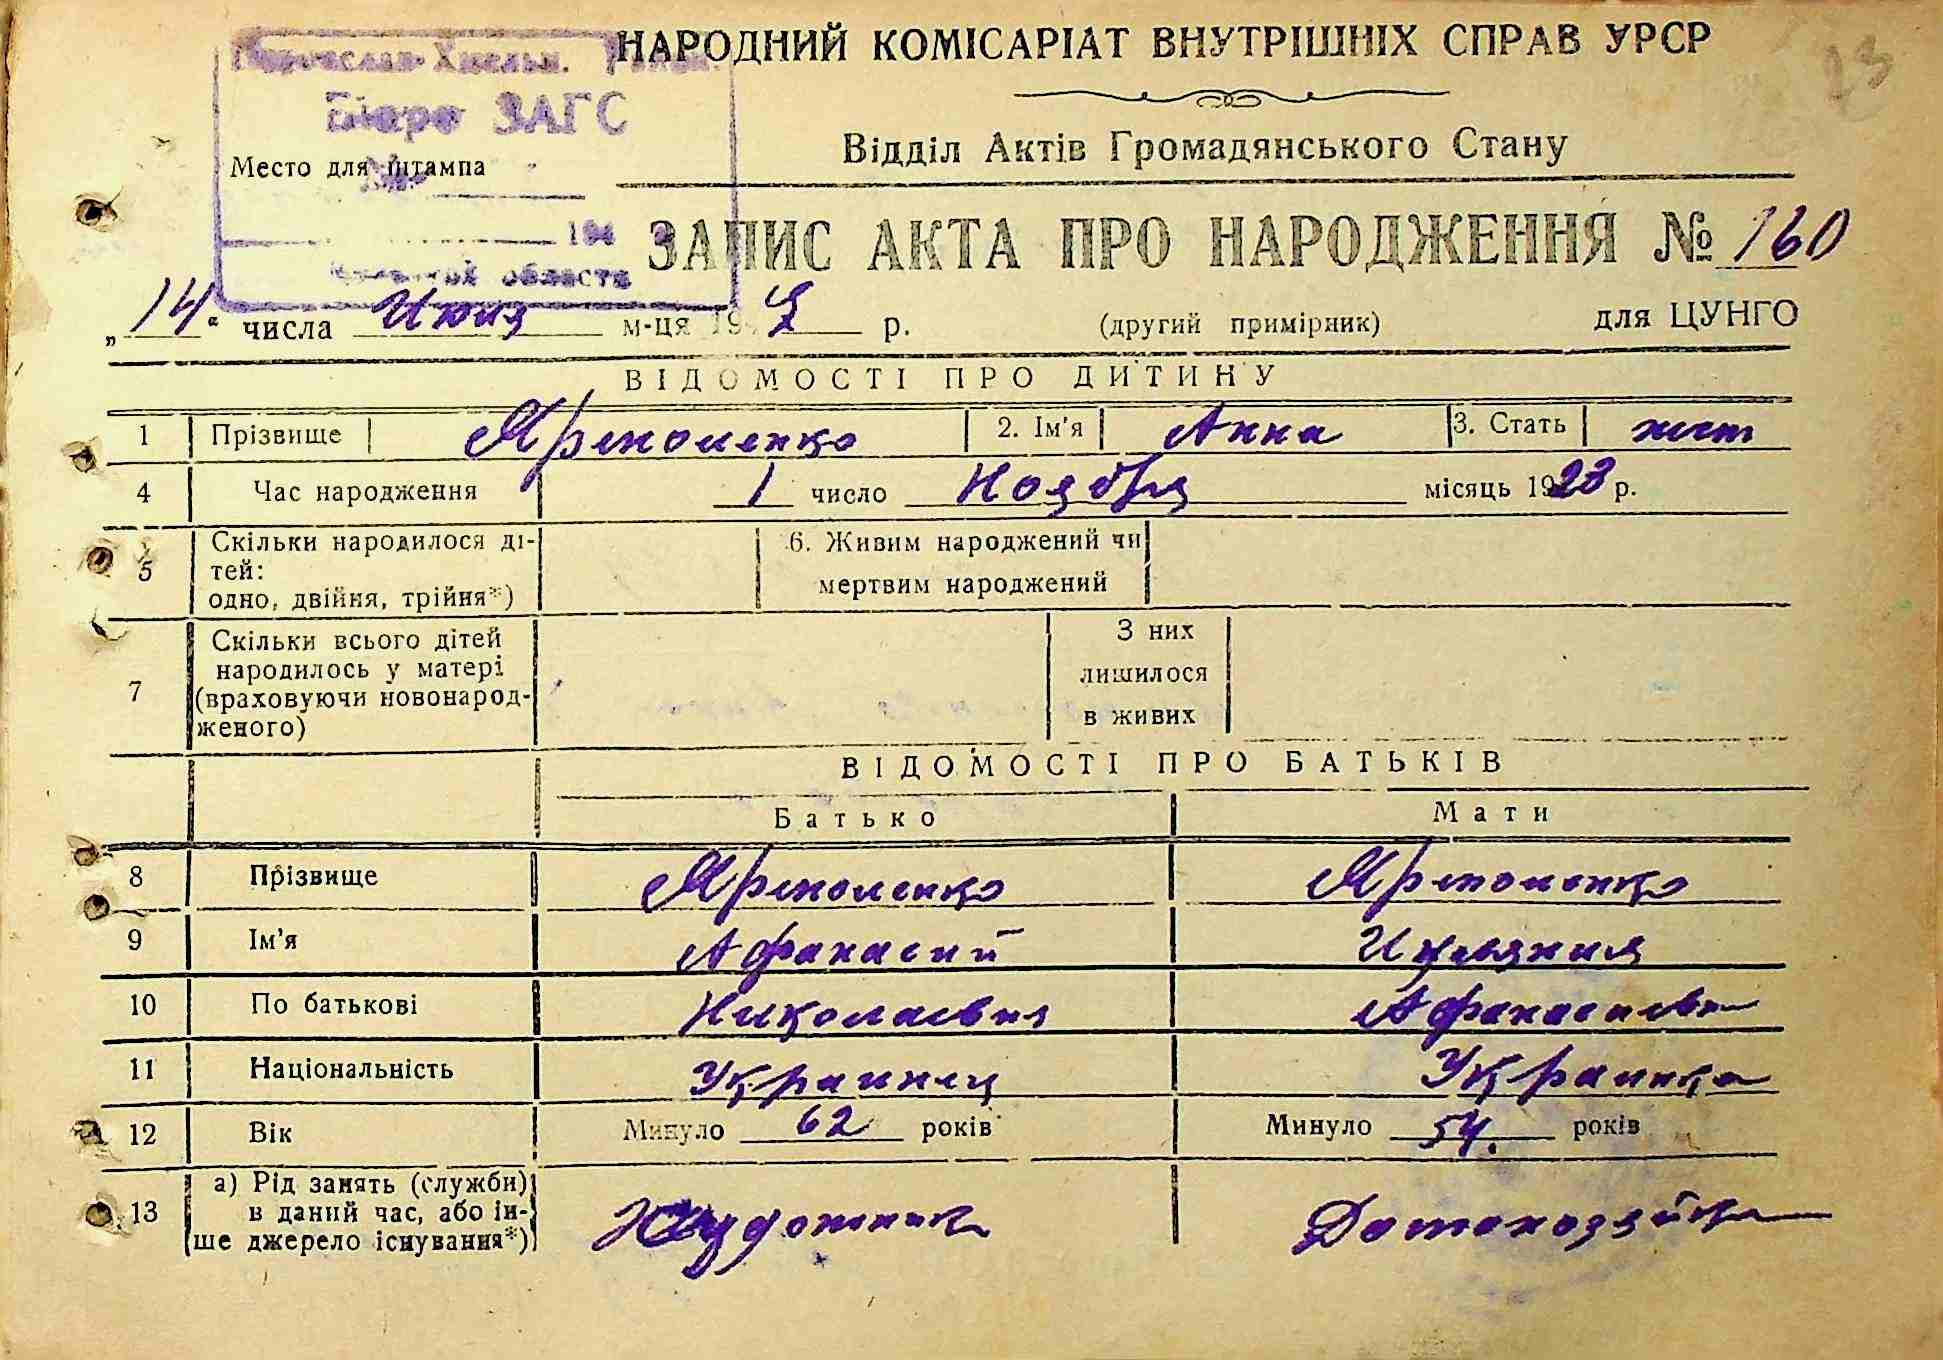 НАРОДНИЙ КОМІСАРІАТ ВНУТРІШНІХ СПРАВ УРСР
23
Переяслав-Хмельн. Район.
Бюро ЗАГС
Відділ Актів Громадянського Стану
Место для штампа
194
области
ЗАПИС АКТА ПРО НАРОДЖЕННЯ № 160
„14“ числа Июня м-ця 194 р.
(другий примірник)
для ЦУНГО
ВІДОМОСТІ ПРО ДИТИНУ
1 Прізвище Ярмоленко 2. Ім'я Анна 3. Стать жен
4 Час народження 1 число Ноября місяць 1923 р.
5 Скільки народилося ді-
тей:
одно, двійня, трійня*)
6. Живим народжений чи
мертвим народжений
7 Скільки всього дітей
народилось у матері
(враховуючи новонарод-
женого)
З них
лишилося
в живих
ВІДОМОСТІ ПРО БАТЬКІВ
Батько Мати
8 Прізвище Ярмоленко Ярмоленко
9 Ім'я Афанасий
10 По батькові Николаевич Афанасиевн
11 Національність Украинец Украинка
12 Вік Минуло 62 років Минуло 54. років
13 а) Рід занять (служби)
в даний час, або ін-
ше джерело існування*)
Художник Домохозяйка